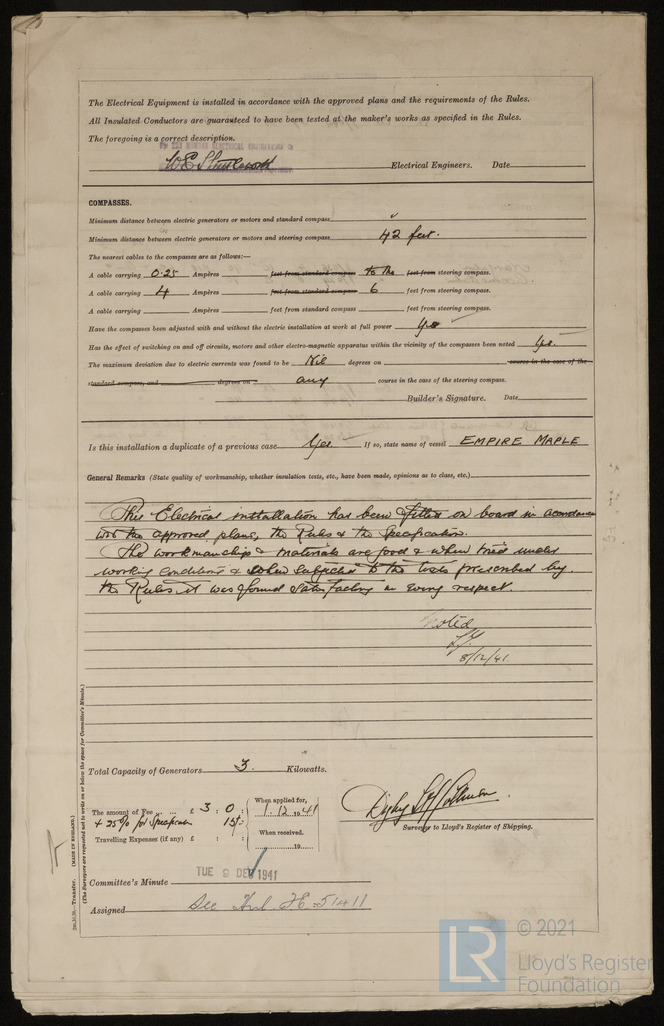 The Electrical Equipment is installed in accordance with the approved plans and the requirements of the Rules.
All Insulated Conductors are guaranteed to have been tested at the maker's works as specified in the Rules.
The foregoing is a correct description.
Electrical Engineers. Date
COMPASSES.
Minimum distance between electric generators or motors and standard compass
Minimum distance between electric generators or motors and steering compass 42 feet.
The nearest cables to the compasses are as follows:—
A cable carrying 0.25 Ampères feet from standard compass to the feet from steering compass.
A cable carrying 4 Ampères feet from standard compass 6 feet from steering compass.
A cable carrying Ampères feet from standard compass feet from steering compass.
Have the compasses been adjusted with and without the electric installation at work at full power Yes
Has the effect of switching on and off circuits, motors and other electro-magnetic apparatus within the vicinity of the compasses been noted Yes.
The maximum deviation due to electric currents was found to be Nil degrees on course in the case of the
standard compass, and degrees on any course in the case of the steering compass.
Builder's Signature. Date
Is this installation a duplicate of a previous case Yes. If so, state name of vessel EMPIRE MAPLE
General Remarks (State quality of workmanship, whether insulation tests, etc., have been made, opinions as to class, etc.)
This Electrical installation has been fitted on board in accordance
with the approved plans, the Rules & the Specification.
The workmanship & materials are good & when tried under
working conditions & when subjected to the tests prescribed by
the Rules it was found satisfactory in every respect.
Noted
8/12/41
Total Capacity of Generators 3 Kilowatts.
The amount of Fee ... ... £ 3 : 0 :
When applied for,
1.12.1941
+ 25% for Specification 15/-
Travelling Expenses (if any) £ : :
When received.
19
Surveyor to Lloyd's Register of Shipping.
TUE 9 DEC 1941
Committee's Minute
Assigned See
(The Surveyors are requested not to write on or below the space for Committee's Minute.)
Transfer. (MADE IN ENGLAND.)
LR
© 2021
Lloyd's Register
Foundation